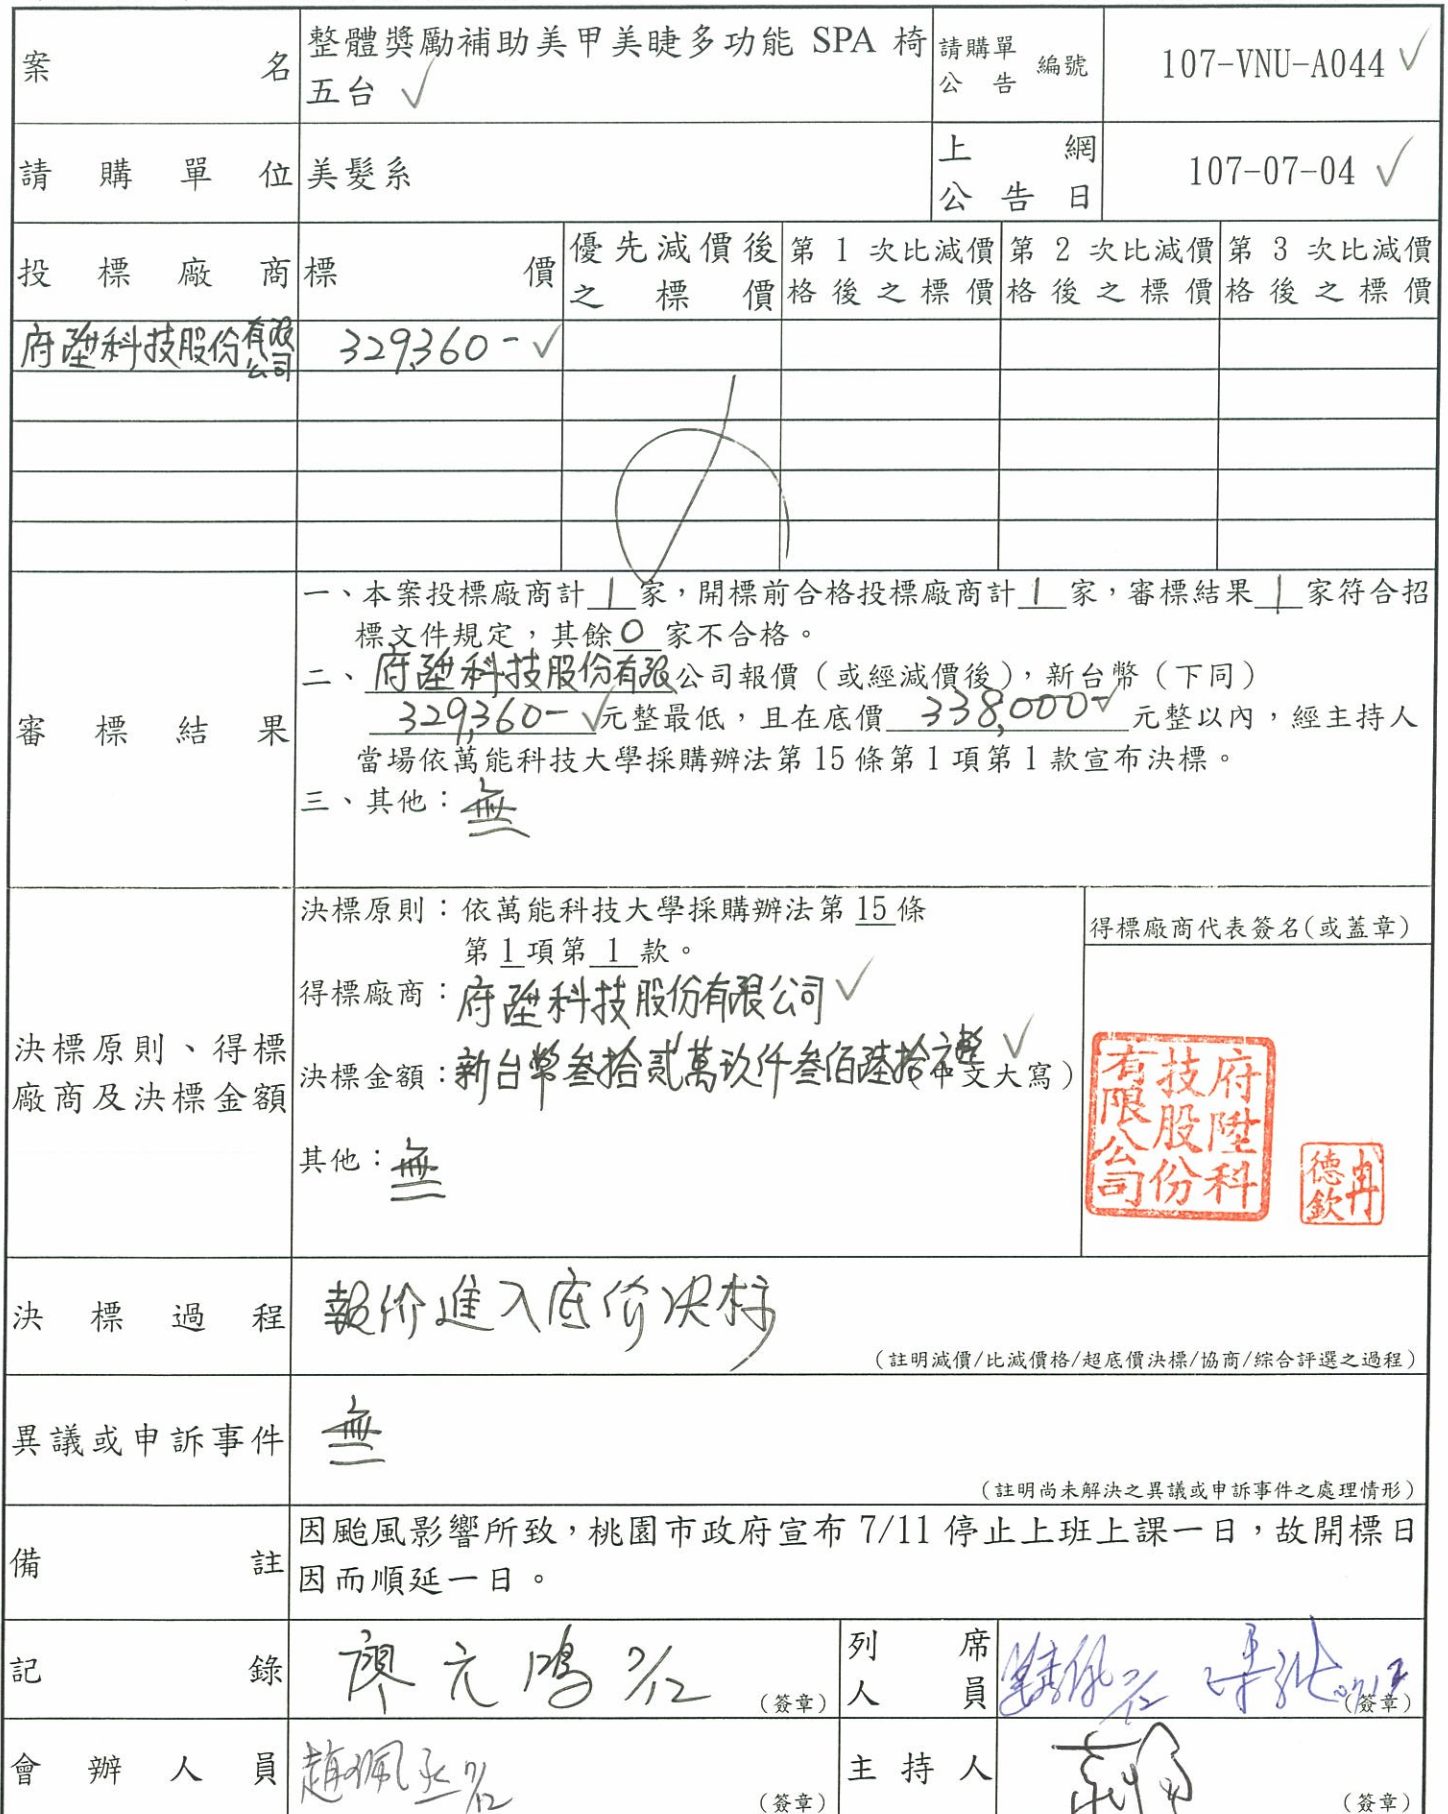 案名 整體獎勵補助美甲美睫多功能 SPA 椅
五台 ✓
請購單
公告 編號 107-VNU-A044 ✓
請購單位 美髮系
上網
公告日 107-07-04 ✓
投標廠商 標價
優先減價後
之標價
第 1 次比減價
格後之標價
第 2 次比減價
格後之標價
第 3 次比減價
格後之標價
府陞科技股份有限公司 329,360- ✓
審標結果
一、本案投標廠商計 1 家，開標前合格投標廠商計 1 家，審標結果 1 家符合招
標文件規定，其餘 0 家不合格。
二、府陞科技股份有限公司報價（或經減價後），新台幣（下同）
329,360- ✓元整最低，且在底價 338,000- ✓ 元整以內，經主持人
當場依萬能科技大學採購辦法第 15 條第 1 項第 1 款宣布決標。
三、其他：無
決標原則、得標
廠商及決標金額
決標原則：依萬能科技大學採購辦法第 15 條
第 1 項第 1 款。
得標廠商：府陞科技股份有限公司 ✓
決標金額：新台幣叁拾貳萬玖仟叁佰陸拾元整 ✓（中文大寫）
其他：無
得標廠商代表簽名(或蓋章)
府陞科
技股份
有限公司
冉
德欽
決標過程 報价進入底价決标
（註明減價/比減價格/超底價決標/協商/綜合評選之過程）
異議或申訴事件 無
（註明尚未解決之異議或申訴事件之處理情形）
備註 因颱風影響所致，桃園市政府宣布 7/11 停止上班上課一日，故開標日
因而順延一日。
記錄 廖元鴻 7/12 （簽章）
列席
人員 7/12 （簽章）
會辦人員 趙珮丞 7/12 （簽章）
主持人 （簽章）